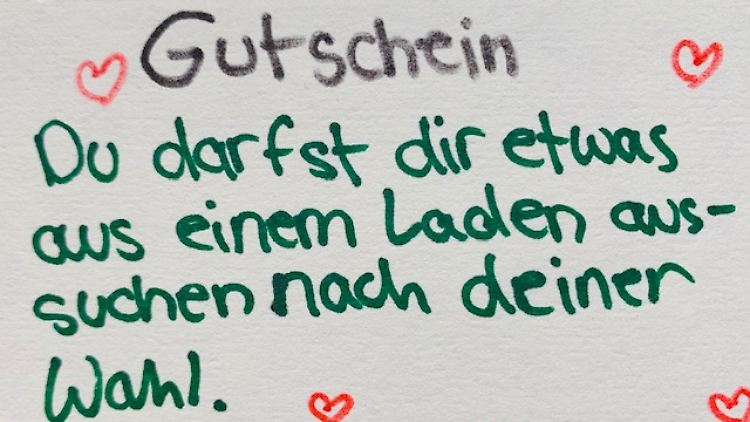 Gutschein
Du darfst dir etwas
aus einem Laden aus-
suchen nach deiner
Wahl.